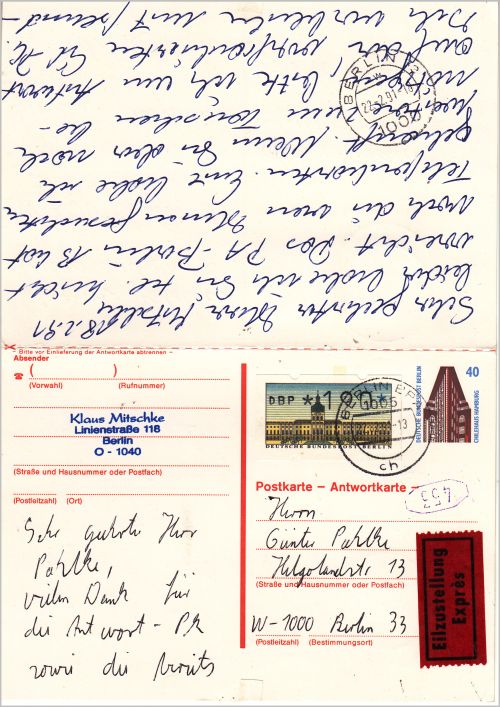 18.2.91
Sehr geehrter Herr Mitschke
leider habe ich Sie tel. nicht
erreicht. Das PA-Berlin 13 hat
noch die von Ihnen gesuchten
Telefonkarten. Eine habe ich
gekauft. Wenn Sie aber noch
weitere tauschen
möchten, bitte ich um Antwort
auf der vorfrankierten
Ich verbleibe mit freund-
BERLIN 12
22.2.91
1000
Bitte vor Einlieferung der Antwortkarte abtrennen
Absender
☎ ( )
(Vorwahl) (Rufnummer)
Klaus Mitschke
Linienstraße 118
Berlin
O - 1040
(Straße und Hausnummer oder Postfach)
(Postleitzahl) (Ort)
Sehr geehrter Herr
Pahlke,
vielen Dank für
die Antwort - PK
sowie die bereits
DBP
DEUTSCHE BUNDESPOST BERLIN
40
DEUTSCHE BUNDESPOST BERLIN
CHILEHAUS HAMBURG
BERLIN
1085
ch
Postkarte – Antwortkarte –
453
Herrn
Günter Pahlke
Helgolandstr 13
(Straße und Hausnummer oder Postfach)
W-1000 Berlin 33
(Postleitzahl) (Bestimmungsort)
Eilzustellung
Exprès